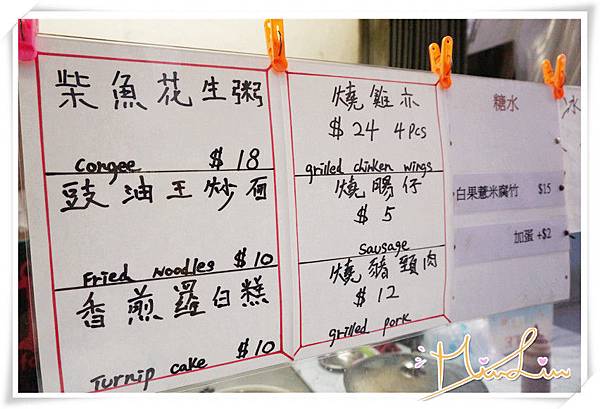 柴魚花生粥
Congee $18
豉油王炒面
Fried Noodles $10
香煎羅白糕
Turnip cake $10
燒雞亦
$24 4pcs
grilled chicken wings
燒腸仔
$5
Sausage
燒豬頸肉
$12
grilled pork
糖水
白果薏米腐竹 $15
加蛋 +$2
水